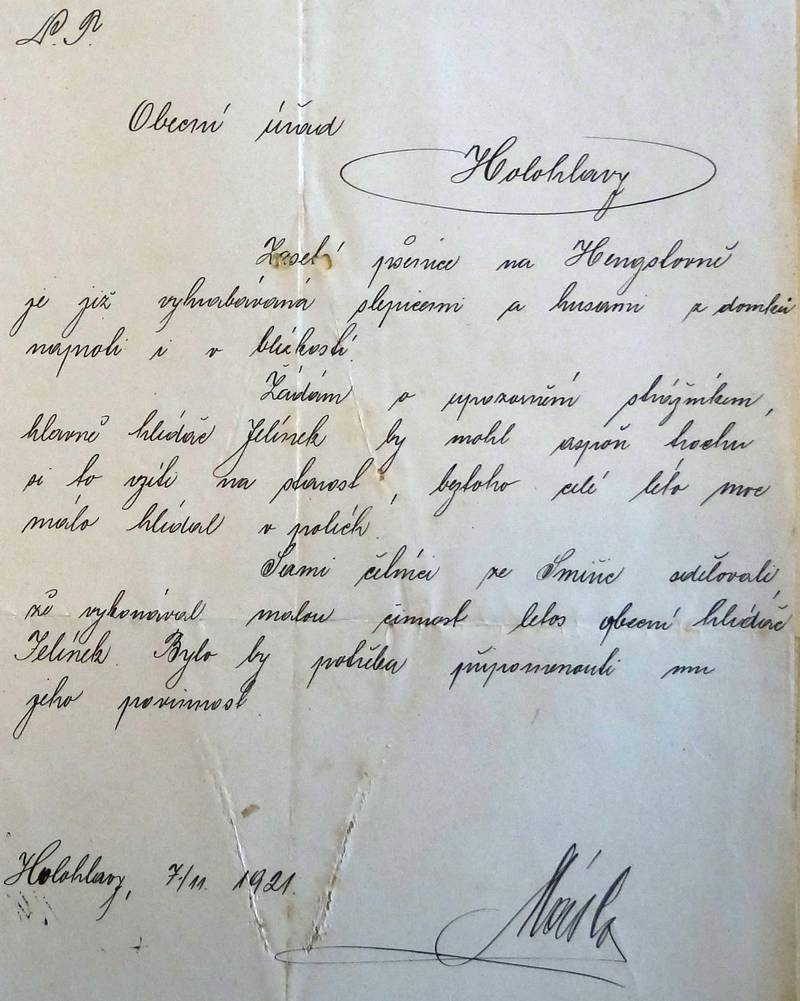 N. P.
Obecní úřad
Holohlavy
Zasetí pšenice na Hengslovně
je již vyhrabávaná slepicemi a husami z domků
naproti i v blízkosti.
Žádám o upozornění strážníkem,
hlavně hlídač Jelínek by mohl aspoň trochu
si to vzíti na starost, beztoho celé léto moc
málo hlídal v polích.
Sami čelníci ze Smiřic sdělovali,
že vykonával malou činnost letos obecní hlídač
Jelínek. Bylo by potřeba připomenouti mu
jeho povinnost
Holohlavy, 7./11. 1921.